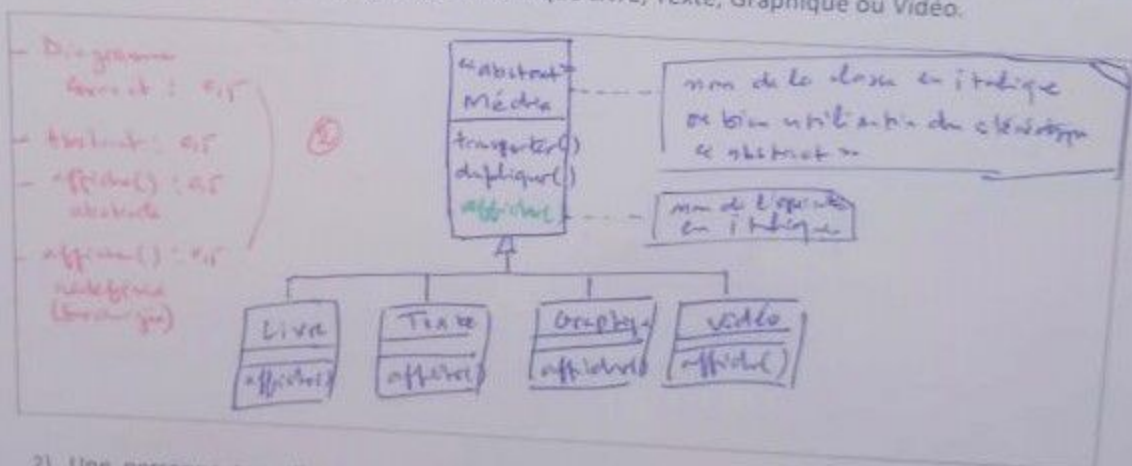 Texte, Graphique ou Vidéo.
- Diagramme
correct : 0,5
- Abstract : 0,5
- affiche() : 0,5
abstraite
- affiche() : 0,5
redéfinie
②
« abstract »
Média
transporter()
dupliquer()
afficher
nom de la classe en italique
ou bien utilisation du stéréotype
« abstract »
nom de l'opération
en italique
Livre
afficher()
Texte
afficher()
Graphique
afficher()
Vidéo
afficher()
2) Une